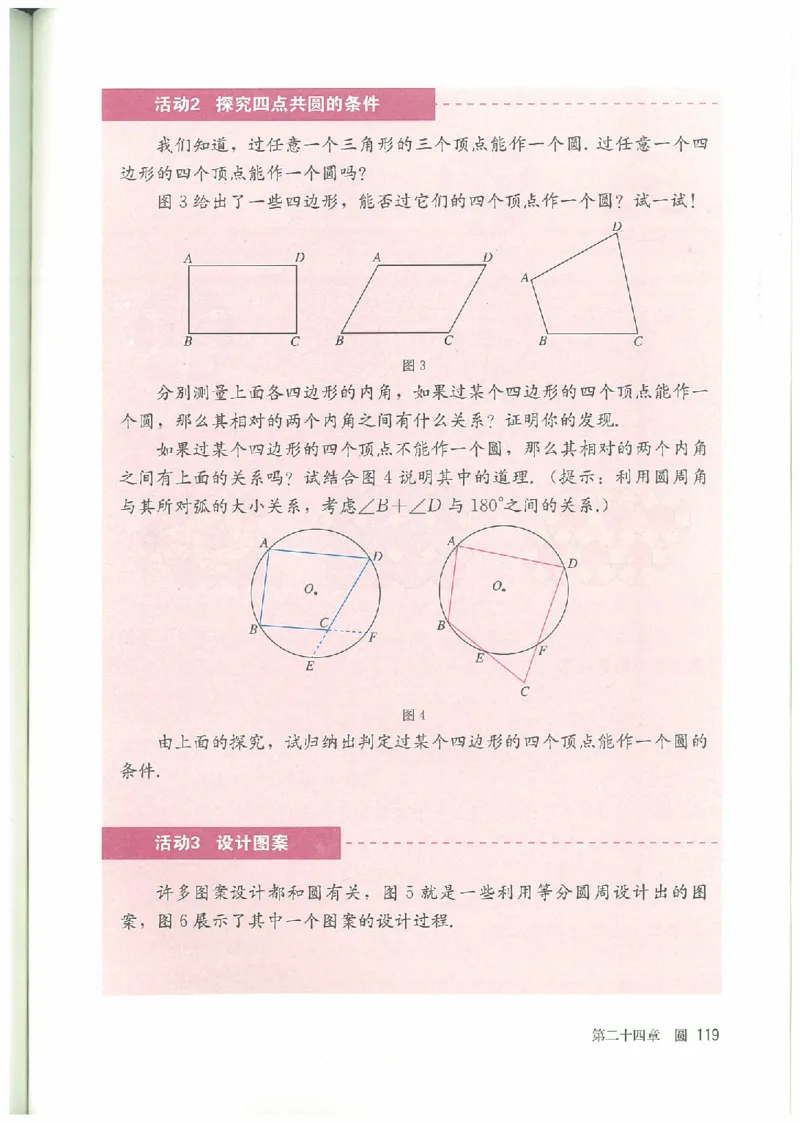 活动2 探究四点共圆的条件
我们知道，过任意一个三角形的三个顶点能作一个圆．过任意一个四
边形的四个顶点能作一个圆吗？
图 3 给出了一些四边形，能否过它们的四个顶点作一个圆？试一试！
A D A D A D
B C B C B C
图 3
分别测量上面各四边形的内角，如果过某个四边形的四个顶点能作一
个圆，那么其相对的两个内角之间有什么关系？证明你的发现．
如果过某个四边形的四个顶点不能作一个圆，那么其相对的两个内角
之间有上面的关系吗？试结合图 4 说明其中的道理．（提示：利用圆周角
与其所对弧的大小关系，考虑∠B＋∠D 与 180°之间的关系．）
A D O B C F E
A D O B E F C
图 4
由上面的探究，试归纳出判定过某个四边形的四个顶点能作一个圆的
条件．
活动3 设计图案
许多图案设计都和圆有关，图 5 就是一些利用等分圆周设计出的图
案，图 6 展示了其中一个图案的设计过程．
第二十四章 圆 119